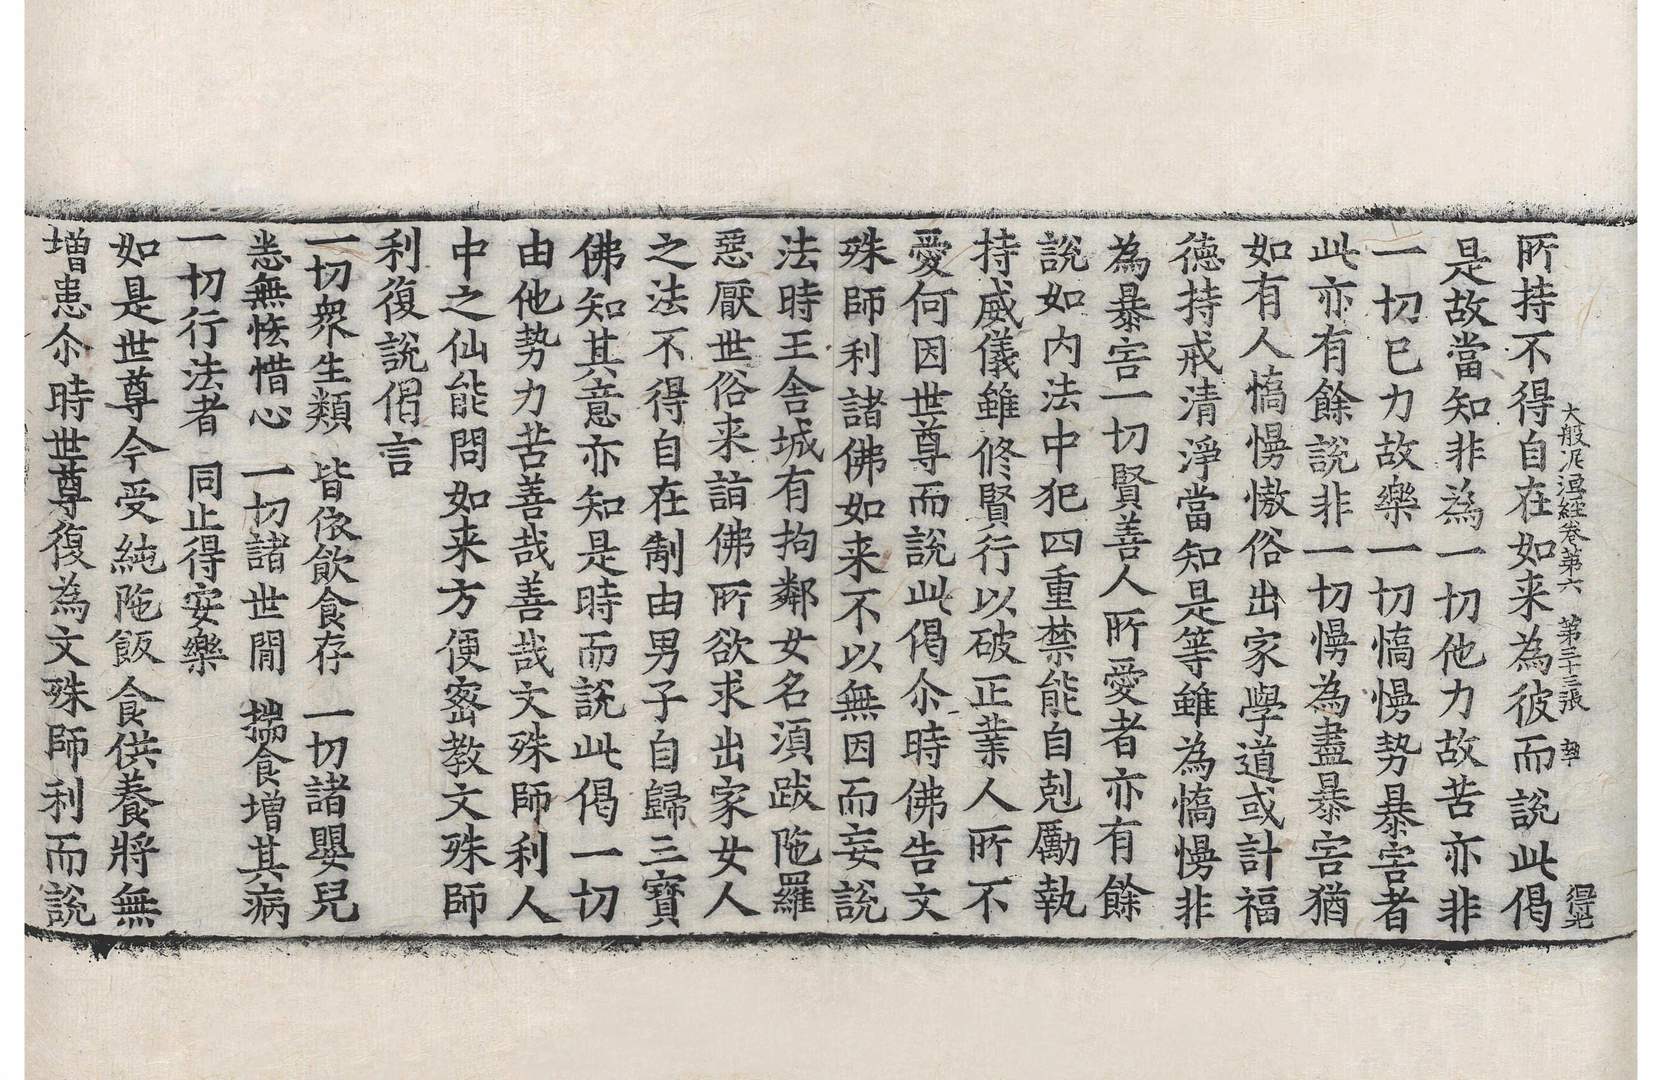 大般泥洹經卷第六 第三十三張 執 得光
所持不得自在如来為彼而說此偈
是故當知非為一切他力故苦亦非
一切巳力故樂一切憍慢勢暴害者
此亦有餘說非一切慢為盡暴害猶
如有人憍慢慠俗出家學道或計福
德持戒清淨當知是等雖為憍慢非
為暴害一切賢善人所愛者亦有餘
說如内法中犯四重禁能自剋勵執
持威儀雖修賢行以破正業人所不
愛何因世尊而說此偈尒時佛告文
殊師利諸佛如来不以無因而妄說
法時王舍城有拘鄰女名湏跋陁羅
惡厭世俗来詣佛所欲求出家女人
之法不得自在制由男子自歸三寶
佛知其意亦知是時而說此偈一切
由他勢力苦善哉善哉文殊師利人
中之仙能問如来方便密教文殊師
利復說偈言
一切衆生類 皆依飲食存 一切諸嬰兒
悉無恡惜心 一切諸世閒 揣食增其病
一切行法者 同止得安樂
如是世尊今受純陁飯食供養將無
增患尒時世尊復為文殊師利而說